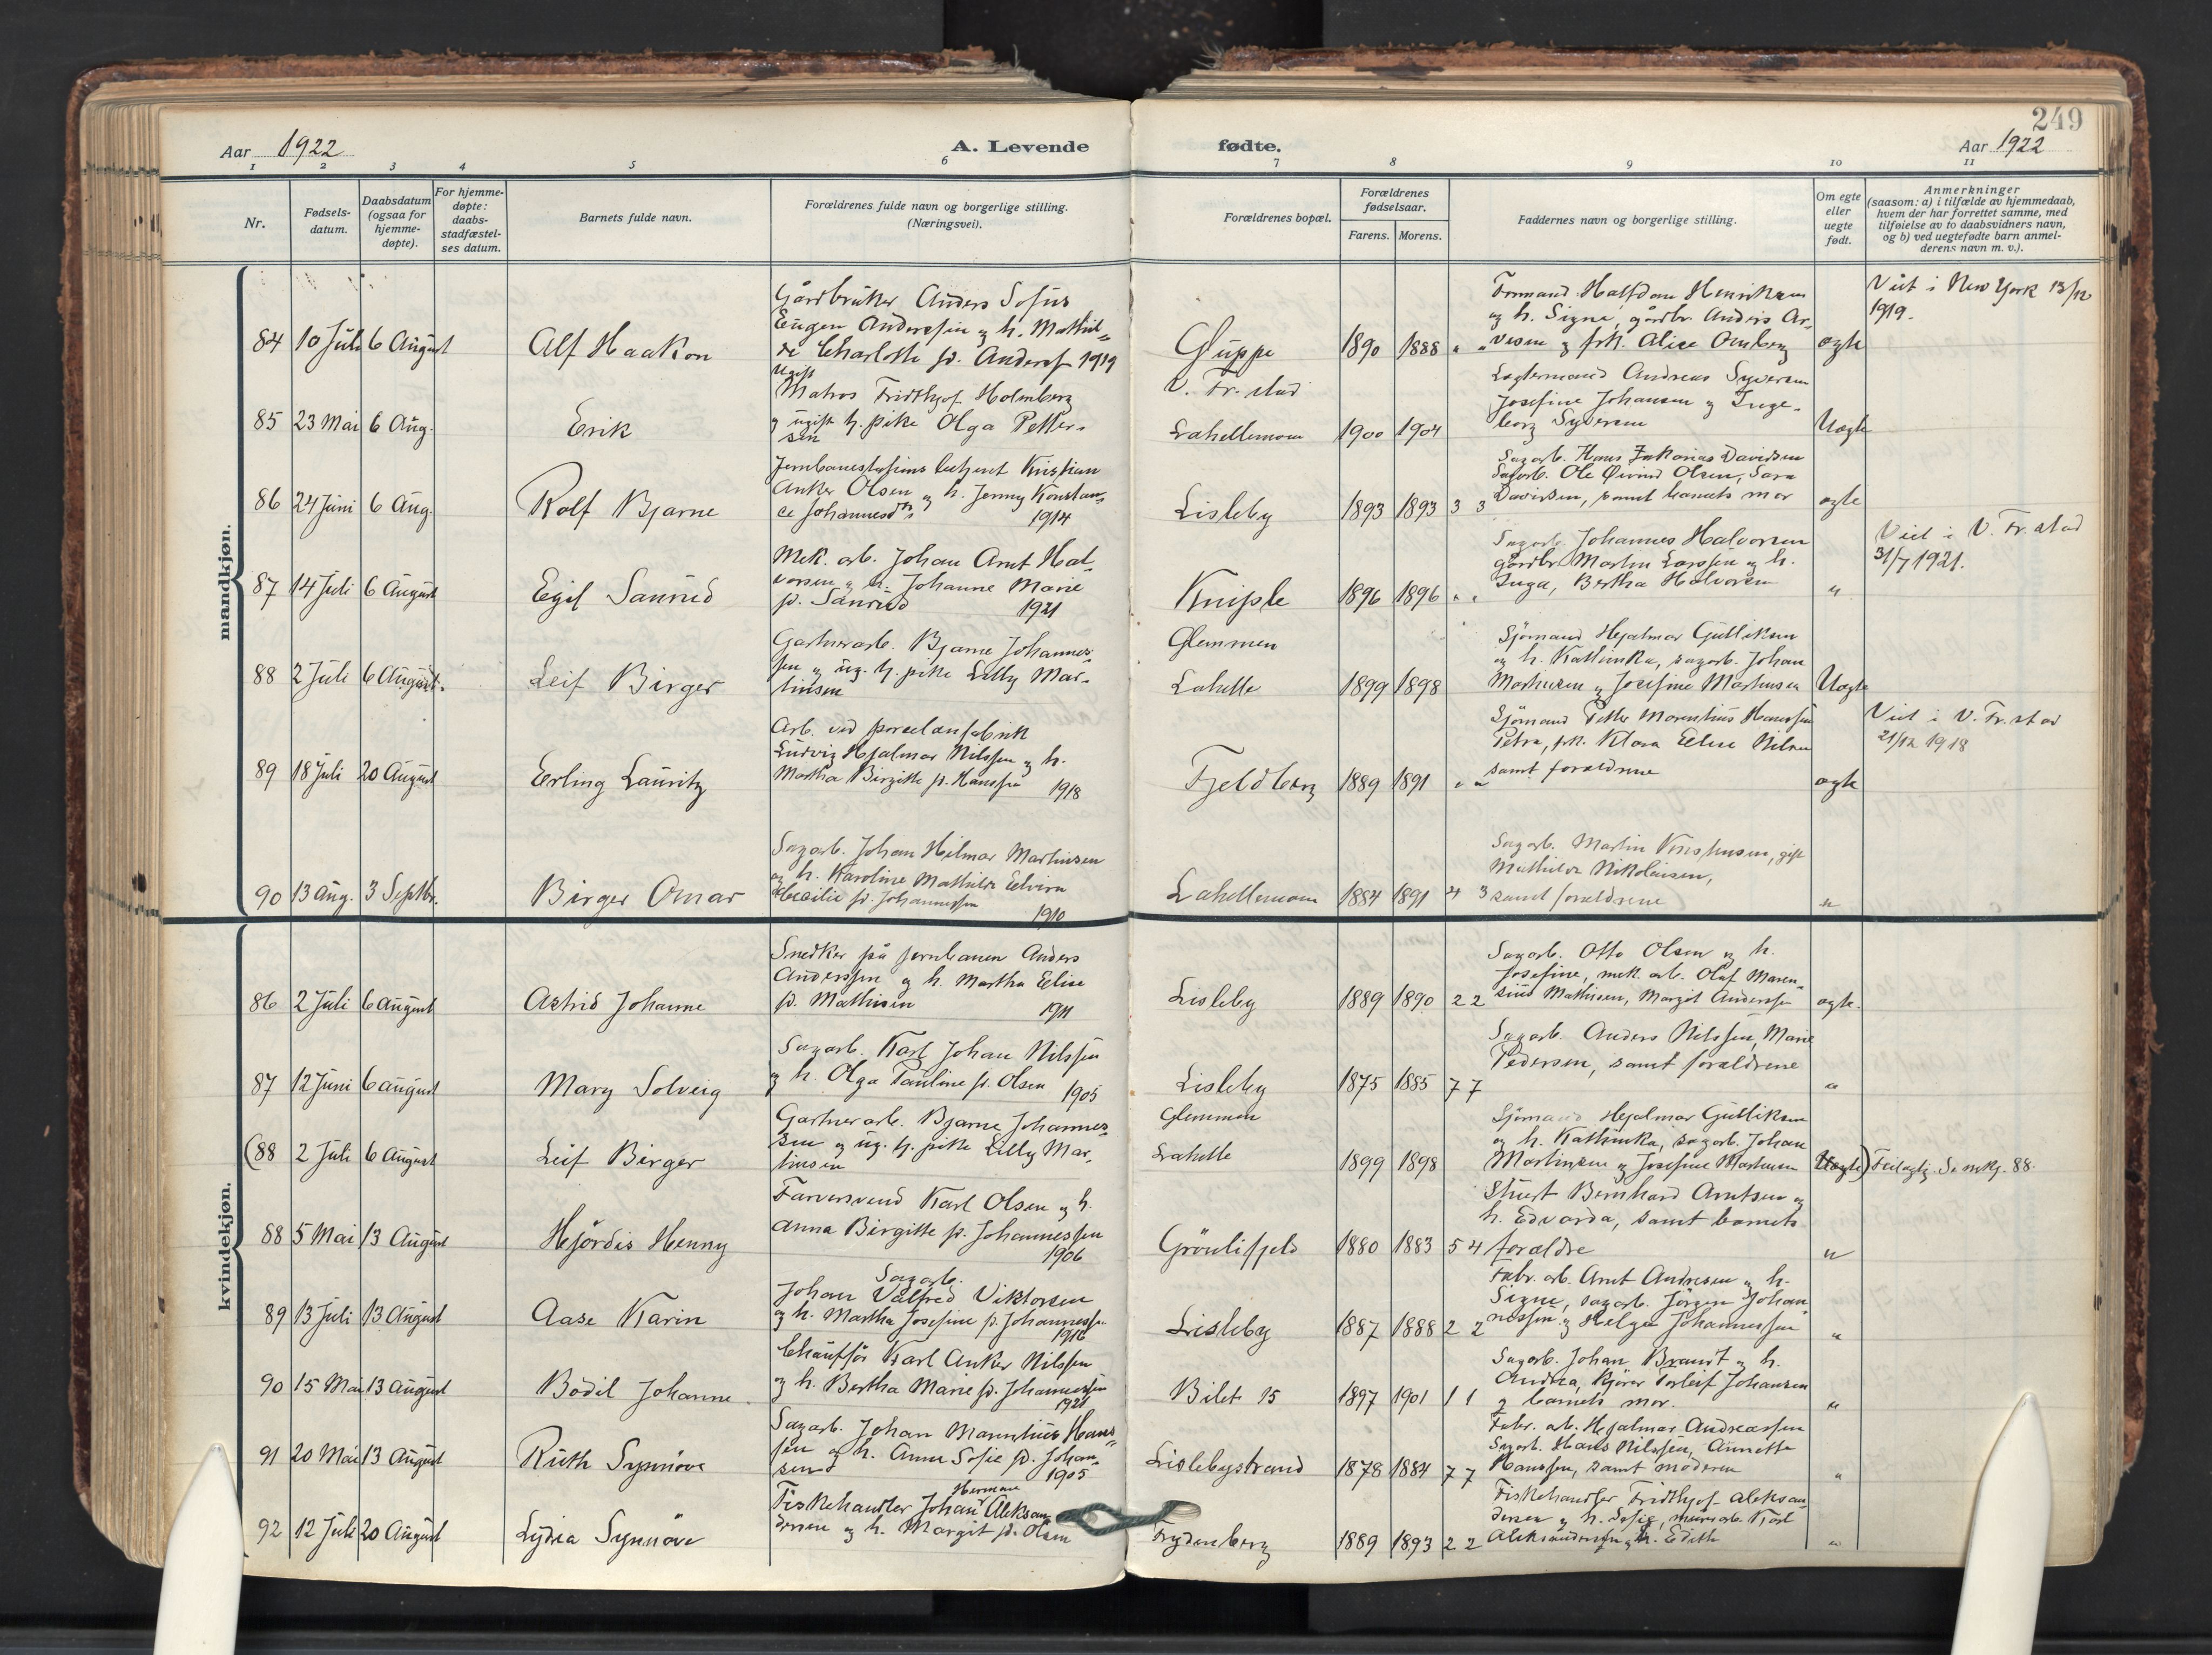 249
Aar 1922
A. Levende
fødte.
Aar 1922
1 2 3 4 5 6 7 8 9 10 11
Nr.
Fødsels-
datum.
Daabsdatum
(ogsaa for
hjemme-
døpte).
For hjemme-
døpte:
daabs-
stadfæstel-
ses datum.
Barnets fulde navn.
Forældrenes fulde navn og borgerlige stilling.
(Næringsvei).
Forældrenes bopæl.
Forældrenes
fødselsaar.
Farens. Morens.
Faddernes navn og borgerlige stilling.
Om egte
eller
uegte
født.
Anmerkninger
(saasom: a) i tilfælde av hjemmedaab,
hvem der har forrettet samme, med
tilføielse av to daabsvidners navn,
og b) ved uegtefødte barn anmel-
derens navn m. v.).
mandkjøn.
84 10 Juli 6 August
Alf Haakon
Gårdbruker Anders Sofus
Eugen Anderssen og h. Mathil-
de Charlotte f. Anders 1919
Gluppe
1890 1888 " "
Formand Halfdan Henriksen
og h. Signe, gårdbr. Anders Ar-
vesen og frk. Alice Omberg
egte
Viet i New York 13/12
1919.
85 23 Mai 6 Aug.
Erik
Ugift
Matros Fridthjof Holmberg
og ugift tj. pike Olga Petter-
sen
V. Fr. stad
Lahellemoen
1900 1904
Lagtermand Andreas Syversen
Josefine Johansen og Inge-
borg Syversen
Uegte
86 24 Juni 6 Aug.
Rolf Bjarne
Jernbanestations betjent Kristian
Anker Olsen og h. Jenny Konstan-
ce Johannesd. 1914
Lisleby
1893 1893 3 3
Sagarb. Hans Zakarias Davidsen
Sagarb. Ole Øivind Olsen, Sara
Davidsen, samt barnets mor
egte
87 14 Juli 6 August
Egil Sanrud
Mek. arb. Johan Arnt Hal-
vorsen og h. Johanne Marie
f. Sanrud 1921
Kniple
1896 1896 " "
Sagarb. Johannes Halvorsen
gårdbr. Martin Larssen og h.
Inga, Bertha Halvorsen
"
Viet i V. Fr. stad
31/7 1921.
88 2 Juli 6 August.
Leif Birger
Gartnerarb. Bjarne Johannes-
sen og ug. tj. pike Lilly Mar-
tinsen
Glemmen
Lahelle
1899 1898
Sjømand Hjalmar Gulliksen
og h. Kathinka, sagarb. Johan
Martinsen og Josefine Martinsen
Uegte
89 18 Juli 20 August
Erling Lauritz
Arb. ved porcelænsfabrik
Ludvig Hjalmar Nilssen og h.
Martha Birgitte f. Hanssen 1918
Fjeldberg
1889 1891 " "
Sjømand Petter Morentius Hanssen
Petra, frk. Klara Elise Nilsen
samt forældrene
egte
Viet i V. Fr. stad
21/12 1918
90 13 Aug. 3 Septbr.
Birger Omar
Sagarb. Johan Hilmar Martinsen
og h. Karoline Mathilde Elvira
Cecilie f. Johannessen 1910
Lahellemoen
1884 1891 4 3
Sagarb. Martin Kristensen, gift
Mathilde Nikolaisen,
samt forældrene
"
kvindekjøn.
86 2 Juli 6 August
Astrid Johanne
Snedker på jernbanen Anders
Anderssen og h. Martha Elise
f. Mathisen 1911
Lisleby
1889 1890 2 2
Sagarb. Otto Olsen og h.
Josefine, mek. arb. Olaf Maren-
sius Mathisen, Margit Anderssen
egte.
87 12 Juni 6 august
Mary Solveig
Sagarb. Karl Johan Nilssen
og h. Olga Pauline f. Olsen 1905
Lisleby
1875 1885 7 7
Sagarb. Anders Nilssen, Marie
Pedersen, samt forældrene
"
(88 2 Juli 6 August
Leif Birger
Gartnerarb. Bjarne Johannes-
sen og ug. tj. pike Lilly Mar-
tinsen
Glemmen
Lahelle
1899 1898
Sjømand Hjalmar Gulliksen
og h. Kathinka, sagarb. Johan
Martinsen og Josefine Martinsen
Uegte)
Feilagtig. Se mkj. 88.
88 5 Mai 13 August
Hjørdis Henny
Farversvend Karl Olsen og h.
Anna Birgitte f. Johannessen
1906
Grønlifjeld
1880 1883 5 4
Stuert Bernhard Arntsen og
h. Edvarda, samt barnets
forældre
"
89 13 Juli 13 August
Aase Karin
Sagarb.
Johan Valfred Viktorsen
og h. Martha Josefine f. Johannessen
1910
Lisleby
1887 1888 2 2
Fabr. arb. Arnt Andresen og h.
Signe, sagarb. Jørgen Johan-
nessen og Helga Johannessen
"
90 15 Mai 13 August
Bodil Johanne
Chauffør Karl Anker Nilssen
og h. Bertha Marie f. Johannessen
1921
Bilet 15
1897 1901 1 1
Sagarb. Johan Brandt og h.
Andrea, kjører Torleif Johansen
og barnets mor.
"
91 20 Mai 13 August
Ruth Synnøve
Sagarb. Johan Hans-
sen og h. Anna Sofie f. Johan-
sen 1905
Lislebystrand
1878 1884 7 7
Fabr. arb. Hjalmar Andreassen
Sagarb. Hans Nilssen, Annette
Hanssen, samt moderen
"
92 12 Juli 20 August
Lydia Synnøve
Herman
Fiskehandler Johan Aleksan-
dersen og h. Margit f. Olsen
Frydenberg
1889 1893 2 2
Fiskehandler Fridthjof Aleksan-
dersen og h. Sofie, murarb. Karl
Aleksandersen og h. Edith
"